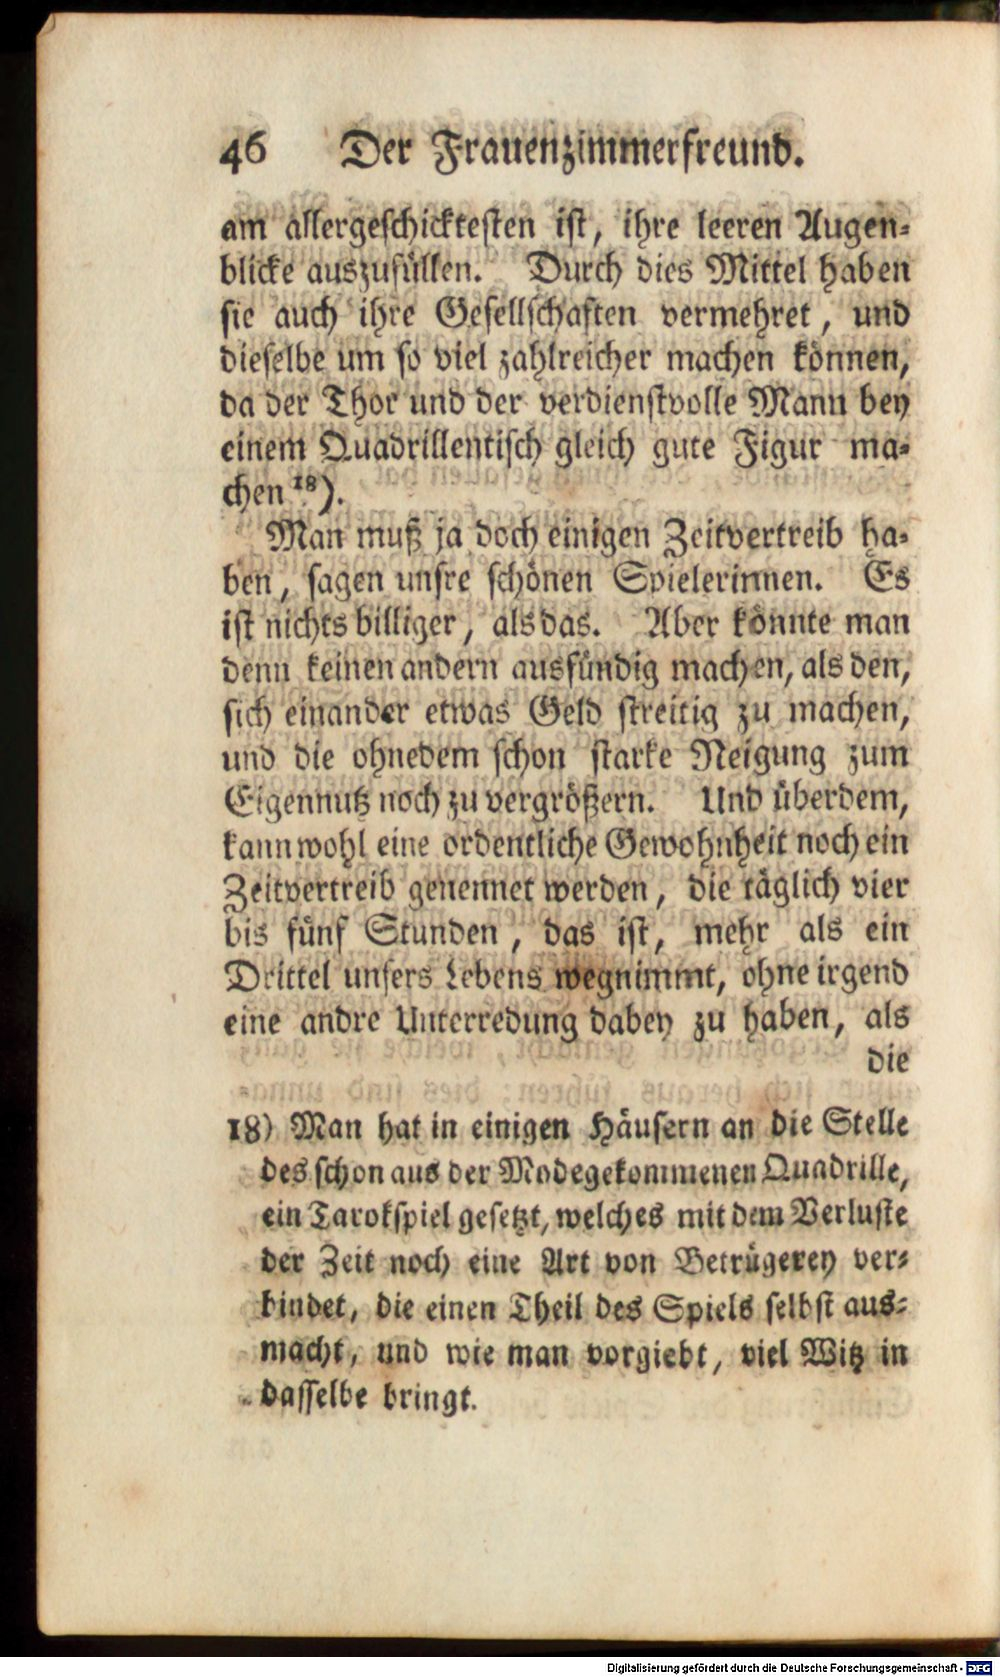 46 Der Frauenzimmerfreund.
am allergeschicktesten ist, ihre leeren Augen-
blicke auszufüllen. Durch dies Mittel haben
sie auch ihre Gesellschaften vermehret, und
dieselbe um so viel zahlreicher machen können,
da der Thor und der verdienstvolle Mann bey
einem Quadrillentisch gleich gute Figur ma-
chen 18).
Man muß ja doch einigen Zeitvertreib ha-
ben, sagen unsre schönen Spielerinnen. Es
ist nichts billiger, als das. Aber könnte man
denn keinen andern ausfündig machen, als den,
sich einander etwas Geld streitig zu machen,
und die ohnedem schon starke Neigung zum
Eigennutz noch zu vergrößern. Und überdem,
kann wohl eine ordentliche Gewohnheit noch ein
Zeitvertreib genennet werden, die täglich vier
bis fünf Stunden, das ist, mehr als ein
Drittel unsers Lebens wegnimmt, ohne irgend
eine andre Unterredung dabey zu haben, als
die
18) Man hat in einigen Häusern an die Stelle
des schon aus der Mode gekommenen Quadrille,
ein Tarokspiel gesetzt, welches mit dem Verluste
der Zeit noch eine Art von Betrügerey ver-
bindet, die einen Theil des Spiels selbst aus-
macht, und wie man vorgiebt, viel Witz in
dasselbe bringt.
Digitalisierung gefördert durch die Deutsche Forschungsgemeinschaft - DFG